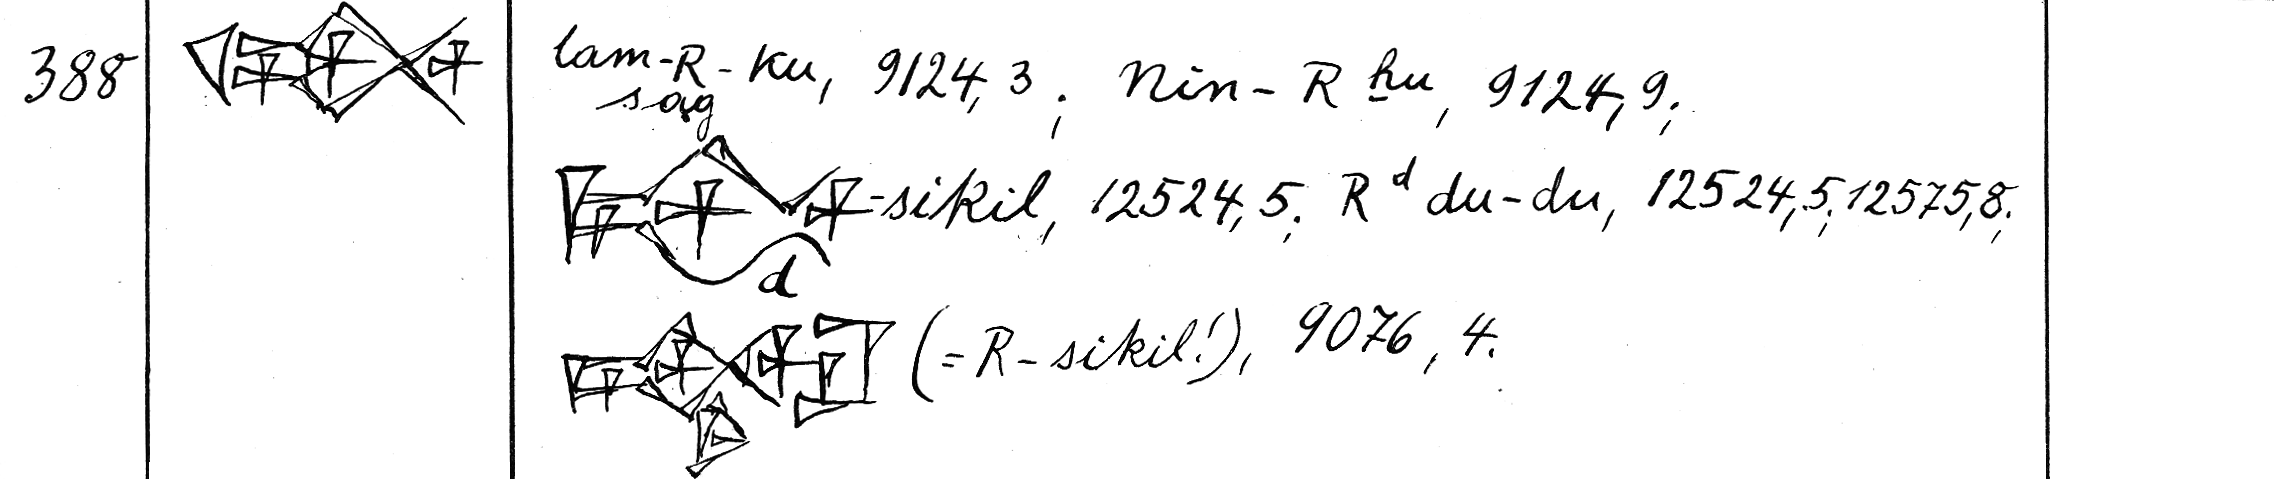 388 lam-R-ku, 9124,3; Nin-R ḫu, 9124,9;
sag
-sikil, 12524,5; R d du-du, 12524,5; 12575,8;
d
(=R-sikil!), 9076, 4.